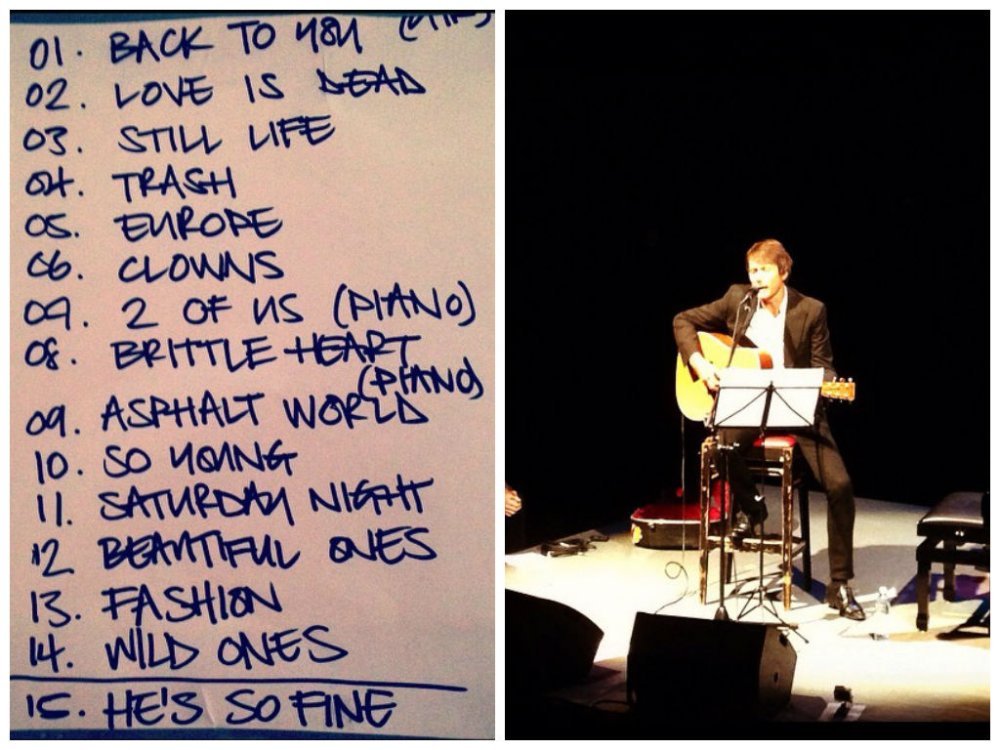 01. BACK TO YOU
02. LOVE IS DEAD
03. STILL LIFE
04. TRASH
05. EUROPE
06. CLOWNS
09. 2 OF US (PIANO)
08. BRITTLE HEART
(PIANO)
09. ASPHALT WORLD
10. SO YOUNG
11. SATURDAY NIGHT
12 BEAUTIFUL ONES
13. FASHION
14. WILD ONES
15. HE'S SO FINE